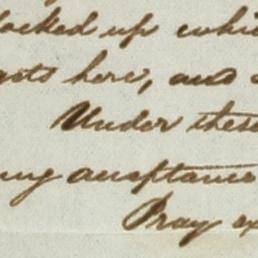 locked up whi
gets here, and
Under these
my acceptance
Pray ex